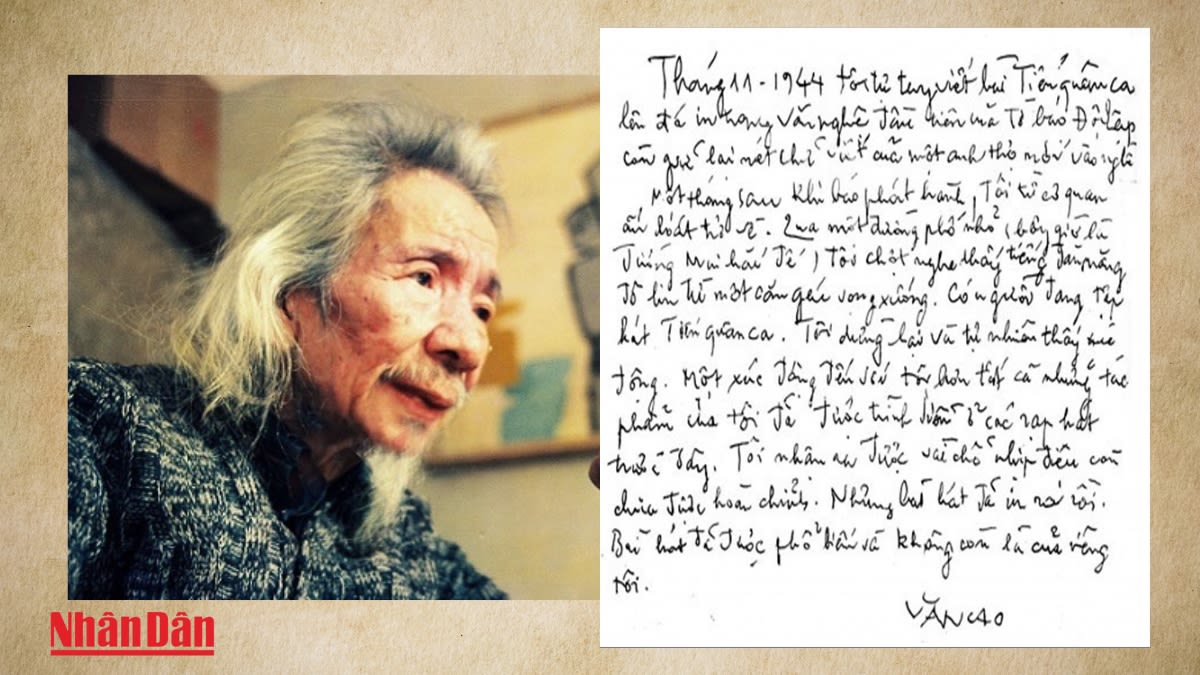 Tháng 11-1944 tôi tự tay viết bài Tiến quân ca
lên đá in trang Văn nghệ đầu tiên mà tờ báo Độc Lập
còn giữ lại nét chữ viết của một anh thợ mới vào nghề
Một tháng sau khi báo phát hành, Tôi từ cơ quan
ấn loát trở về. Qua một đường phố nhỏ (bây giờ là
đường Mai hắc đế) Tôi chợt nghe thấy tiếng đàn măng
đô lin từ một căn gác vọng xuống. Có người đang tập
hát Tiến quân ca. Tôi dừng lại và tự nhiên thấy xúc
động. Một xúc động đến với tôi hơn tất cả những tác
phẩm của tôi đã được trình diễn ở các rạp hát
trước đây. Tôi nhận ra được vài chỗ nhịp điệu còn
chưa được hoàn chỉnh. Nhưng bài hát đã in ra rồi.
Bài hát đã được phổ biến và không còn là của riêng
tôi.
VĂN CAO
Nhân Dân